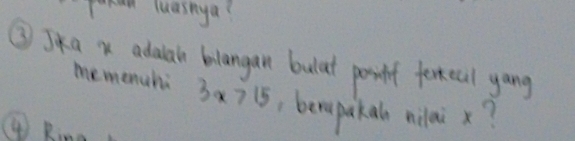 luasnya?
③ Jika x adalah bilangan bulat positif terkecil yang
memenuhi 3x > 15, berapakah nilai x?
④